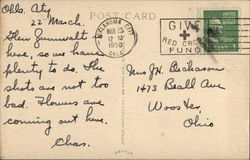 Okla. City
22 March.
POST CARD
Glen Zumwalt is
here, so we have
plenty to do. The
shots are not too
bad. Flowers are
coming out here.
Chas.
OKLAHOMA CITY
MAR 23
12 M
1950
OKLA.
GIVE
RED CROSS
FUND
Mrs J H
1473 Beall Ave
Wooster,
Ohio